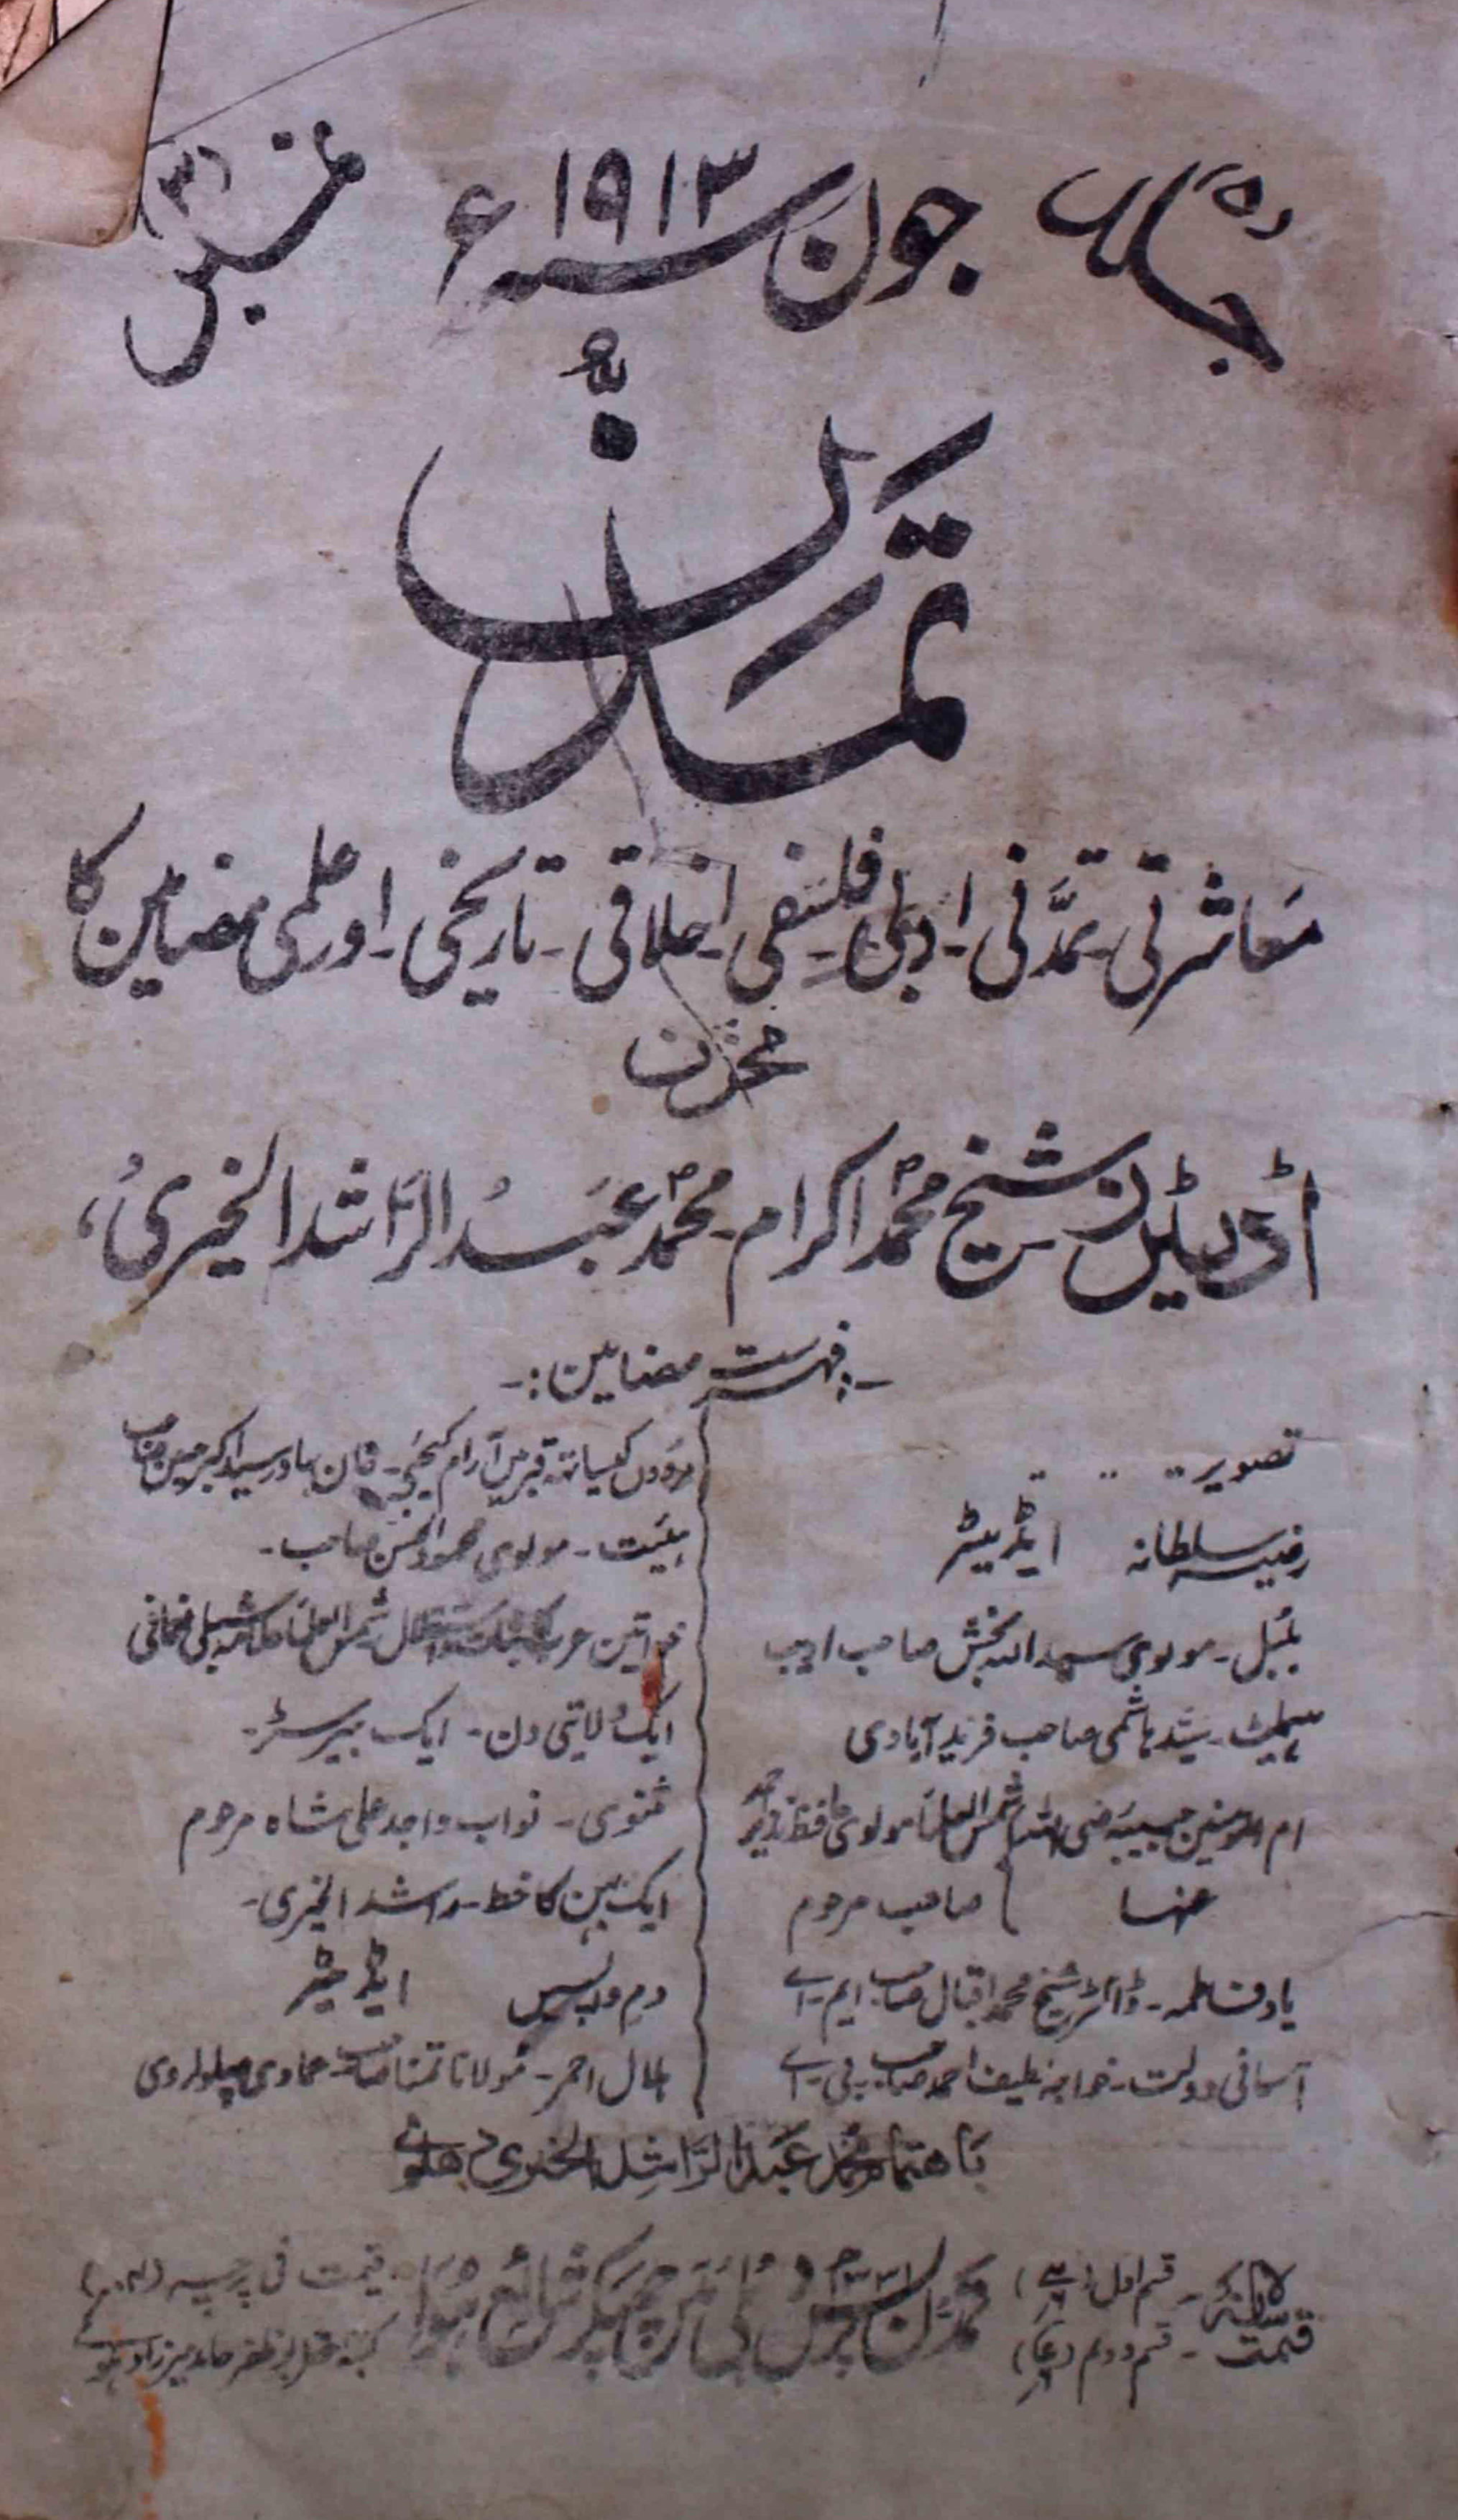 جلد (۵) جون سنہ ۱۹۱۳ ء نمبر (۳)
تمدّن
معاشرتی ـ تمدّنی ـ ادبی ـ فلسفی ـ اخلاقی ـ تاریخی ـ اور علمی مضامین کا
مخزن
اڈیٹرز شیخ محمد اکرام ـ محمد عبد الراشد الخیری،
ـ: فہرست مضامین :ـ
تصویر
رضیہ سلطانہ ایڈیٹر
بلبل ـ مولوی سید اللہ بخش صاحب ادیب
ہیملیٹ ـ سید ہاشمی صاحب فرید آبادی
ام المومنین حبیبہ رضی اللہ شمس العلماء مولوی حافظ نذیر احمد
عنہا صاحب مرحوم
یاد فاطمہ ـ ڈاکٹر شیخ محمد اقبال صاحب ایم ـ اے
آسمانی دولت ـ خواجہ لطیف احمد صاحب بی ـ اے
مردوں کیساتھ قبر میں آرام کیجئے ـ خان بہادر سید اکبر حسین صاحب
ہیئت ـ مولوی محمود الحسن صاحب ـ
خواتین عرب کا ثبات و استقلال شمس العلماء علامہ شبلی نعمانی
ایک ولایتی دن ـ ایک بیرسٹر ـ
مثنوی ـ نواب واجد علی شاہ مرحوم
ایک بہن کا خط ـ راشد الخیری ـ
دم واپسیں ایڈیٹر
ہلال احمر ـ مولانا تمنا صاحب عمادی پھلواروی
باہتمام محمد عبد الراشد الخیری دہلوی
قیمت سالانہ ـ قسم اول
قسم دوم
محمڈن پریس دہلی میں چھپکر شائع ہوا
قیمت فی پرچہ